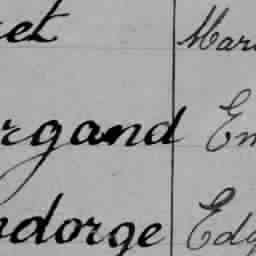 et Mar
rgand Em
ndorge Edg